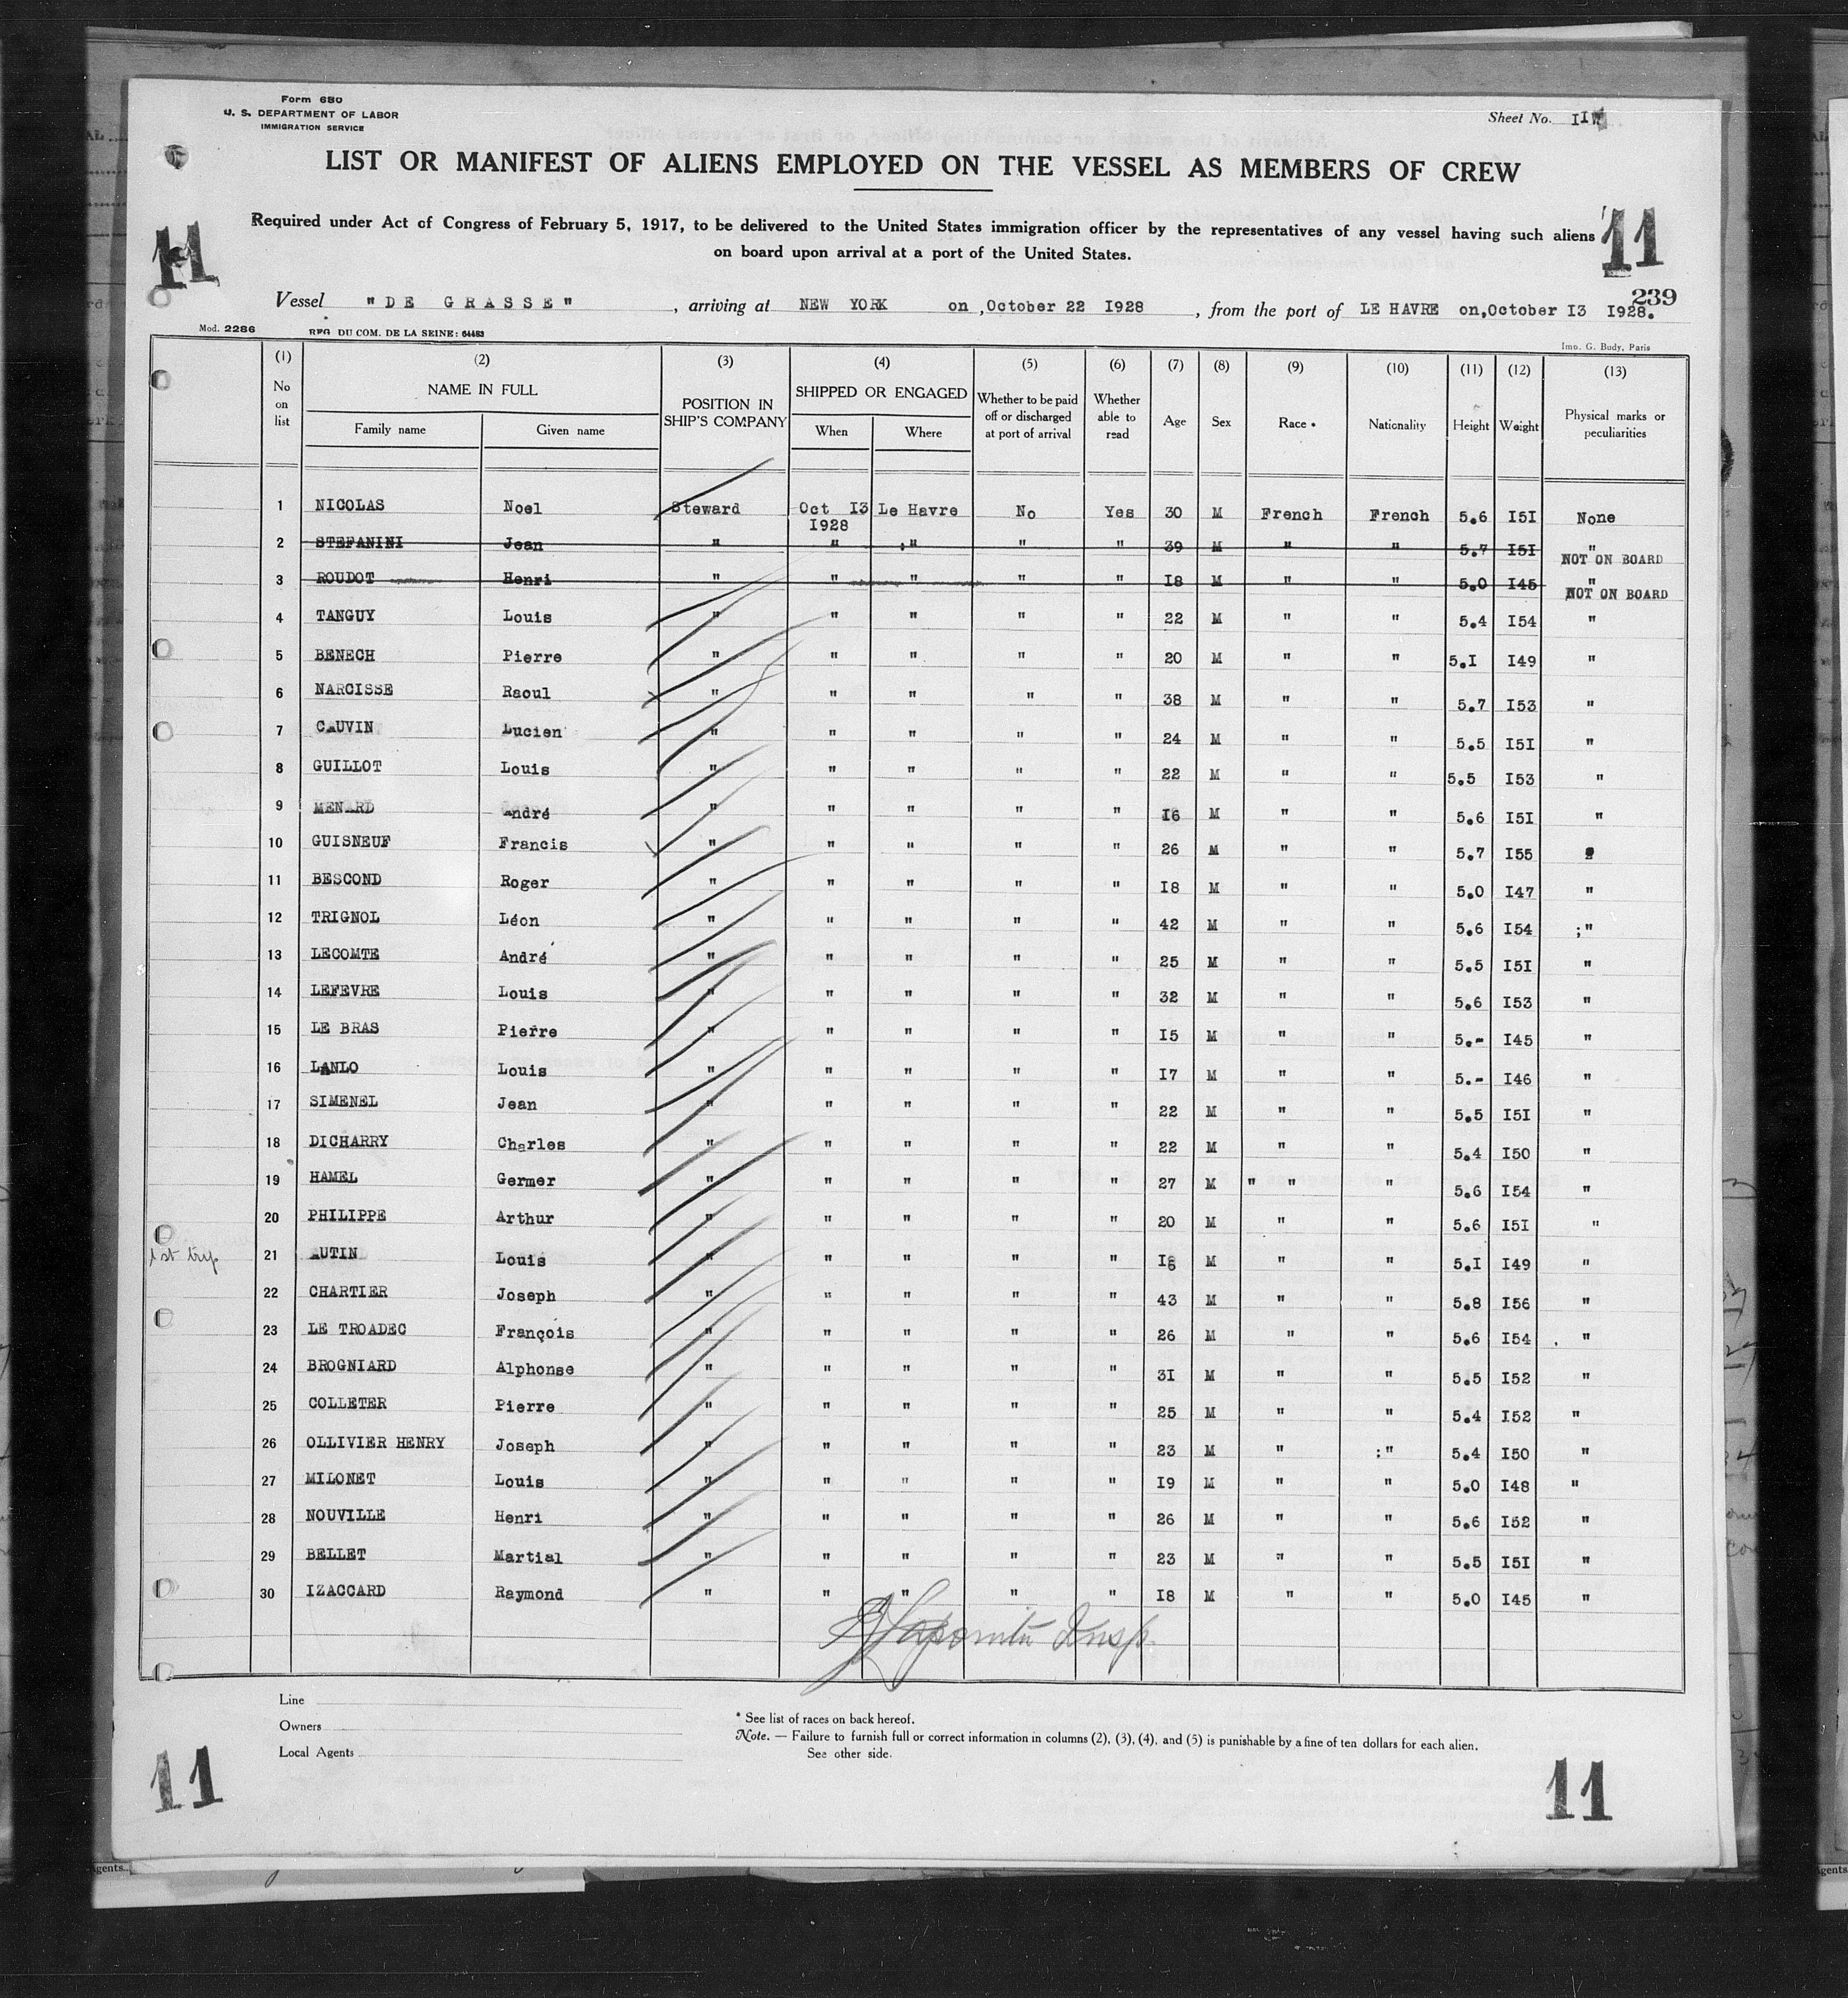 Form 680
U. S. DEPARTMENT OF LABOR
IMMIGRATION SERVICE
Sheet No.
LIST OR MANIFEST OF ALIENS EMPLOYED ON THE VESSEL AS MEMBERS OF CREW
Required under Act of Congress of February 5, 1917, to be delivered to the United States immigration officer by the representatives of any vessel having such aliens
on board upon arrival at a port of the United States.
11 11
239
Vessel "DE GRASSE", arriving at NEW YORK on, October 22 1928, from the port of LE HAVRE on, October 13 1928.
Mod. 2286 REG. DU COM. DE LA SEINE: 64483 Imp. G. Budy, Paris
(1) (2) (3) (4) (5) (6) (7) (8) (9) (10) (11) (12) (13)
No on list NAME IN FULL Family name Given name POSITION IN SHIP'S COMPANY SHIPPED OR ENGAGED When Where Whether to be paid off or discharged at port of arrival Whether able to read Age Sex Race * Nationality Height Weight Physical marks or peculiarities
1 NICOLAS Noel Steward Oct I3 1928 Le Havre No Yes 30 M French French 5.6 I5I None
2 STEFANINI Jean " " ;" " " 39 M " " 5.7 I5I " NOT ON BOARD
3 ROUDOT Henri " " " " " I8 M " " 5.0 I45 " NOT ON BOARD
4 TANGUY Louis " " " " " 22 M " " 5.4 I54 "
5 BENECH Pierre " " " " " 20 M " " 5.I I49 "
6 NARCISSE Raoul " " " " " 38 M " " 5.7 I53 "
7 CAUVIN Lucien " " " " " 24 M " " 5.5 I5I "
8 GUILLOT Louis " " " " " 22 M " " 5.5 I53 "
9 MENARD André " " " " " I6 M " " 5.6 I5I "
10 GUISNEUF Francis " " " " " 26 M " " 5.7 I55
11 BESCOND Roger " " " " " I8 M " " 5.0 I47 "
12 TRIGNOL Léon " " " " " 42 M " " 5.6 I54 ;"
13 LECOMTE André " " " " " 25 M " " 5.5 I5I "
14 LEFEVRE Louis " " " " " 32 M " " 5.6 I53 "
15 LE BRAS Pierre " " " " " I5 M " " 5.- I45 "
16 LANLO Louis " " " " " I7 M " " 5.- I46 "
17 SIMENEL Jean " " " " " 22 M " " 5.5 I5I "
18 DICHARRY Charles " " " " " 22 M " " 5.4 I50 "
19 HAMEL Germer " " " " " 27 M " " " 5.6 I54 "
20 PHILIPPE Arthur " " " " " 20 M " " 5.6 I5I "
1st trip 21 AUTIN Louis " " " " " M " " 5.I I49 "
22 CHARTIER Joseph " " " " " 43 M " " 5.8 I56 "
23 LE TROADEC François " " " " " 26 M " " 5.6 I54 "
24 BROGNIARD Alphonse " " " " " 3I M " " 5.5 I52 "
25 COLLETER Pierre " " " " " 25 M " " 5.4 I52 "
26 OLLIVIER HENRY Joseph " " " " " 23 M " :" 5.4 I50 "
27 MILONET Louis " " " " " I9 M " " 5.0 I48 "
28 NOUVILLE Henri " " " " " 26 M " " 5.6 I52 "
29 BELLET Martial " " " " " 23 M " " 5.5 I5I "
30 IZACCARD Raymond " " " " " I8 M " " 5.0 I45 "
Insp.
Line
Owners
Local Agents
* See list of races on back hereof.
Note. — Failure to furnish full or correct information in columns (2), (3), (4), and (5) is punishable by a fine of ten dollars for each alien.
See other side.
11 11